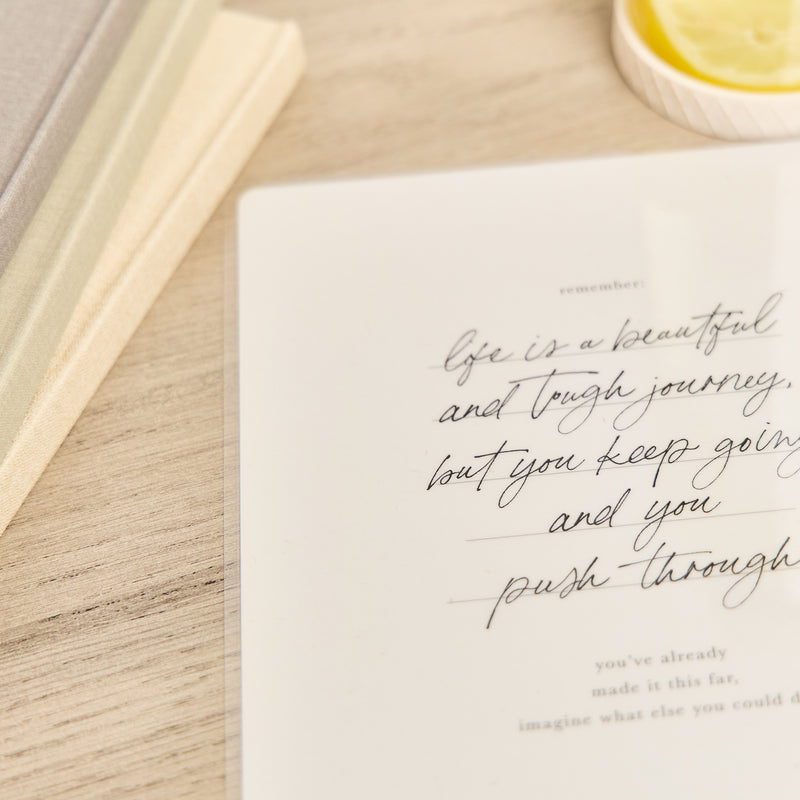 remember:
life is a beautiful
and tough journey.
but you keep going
and you
push through
you've already
made it this far,
imagine what else you could d